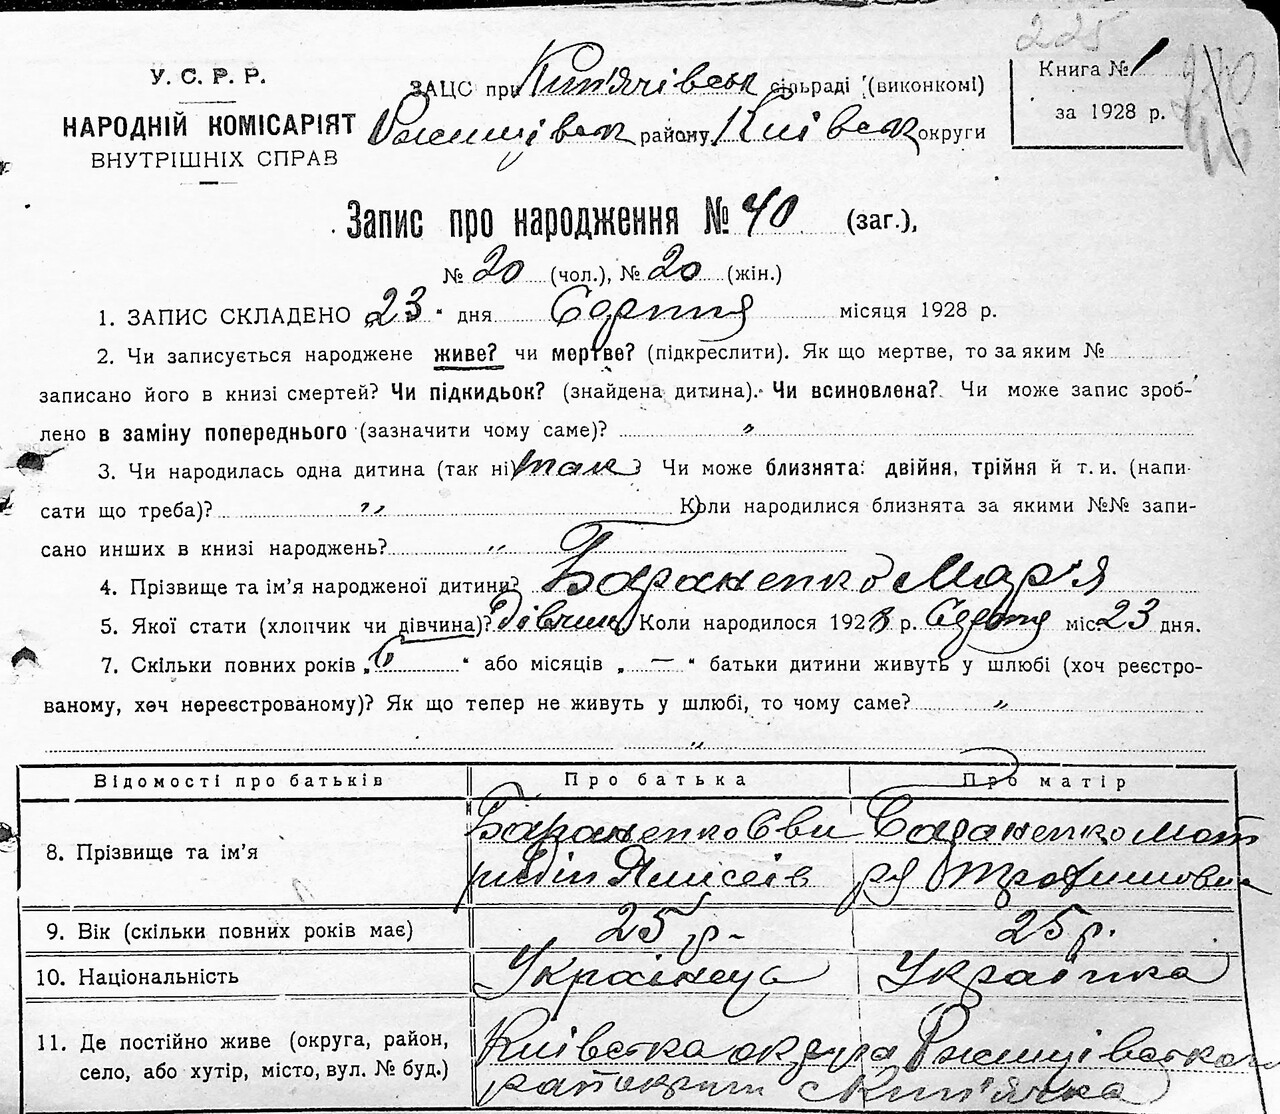 225
У. С. Р. Р.
НАРОДНІЙ КОМІСАРІЯТ
ВНУТРІШНІХ СПРАВ
ЗАЦС при Кип'ячівськ сільраді (виконкомі)
Ржищівськ району, Київськ округи
Книга № 1
за 1928 р.
Запис про народження № 40 (заг.),
№ 20 (чол.), № 20 (жін.)
1. ЗАПИС СКЛАДЕНО „23“ дня Серпня місяця 1928 р.
2. Чи записується народжене живе? чи мертве? (підкреслити). Як що мертве, то за яким №
записано його в книзі смертей? Чи підкидьок? (знайдена дитина). Чи всиновлена? Чи може запис зроб-
лено в заміну попереднього (зазначити чому саме)? „
3. Чи народилась одна дитина (так ні) так ? Чи може близнята: двійня, трійня й т. и. (напи-
сати що треба)? „ Коли народилися близнята за якими №№ запи-
сано инших в книзі народжень? „
4. Прізвище та ім'я народженої дитини? Бараненко Мар'я
5. Якої стати (хлопчик чи дівчина)? дівчина Коли народилося 1928 р. Серпня міс. 23 дня.
7. Скільки повних років „6“ або місяців „—“ батьки дитини живуть у шлюбі (хоч реєстро-
ваному, хоч нереєстрованому)? Як що тепер не живуть у шлюбі, то чому саме? „
„
Відомості про батьків Про батька Про матір
8. Прізвище та ім'я Бараненко Бараненко Мот
ря Трохимовна
9. Вік (скільки повних років має) 25 р. 25 р.
10. Національність Українець Українка
11. Де постійно живе (округа, район, Київська округа Ржищівського
село, або хутір, місто, вул. № буд.) с Кип'ячка